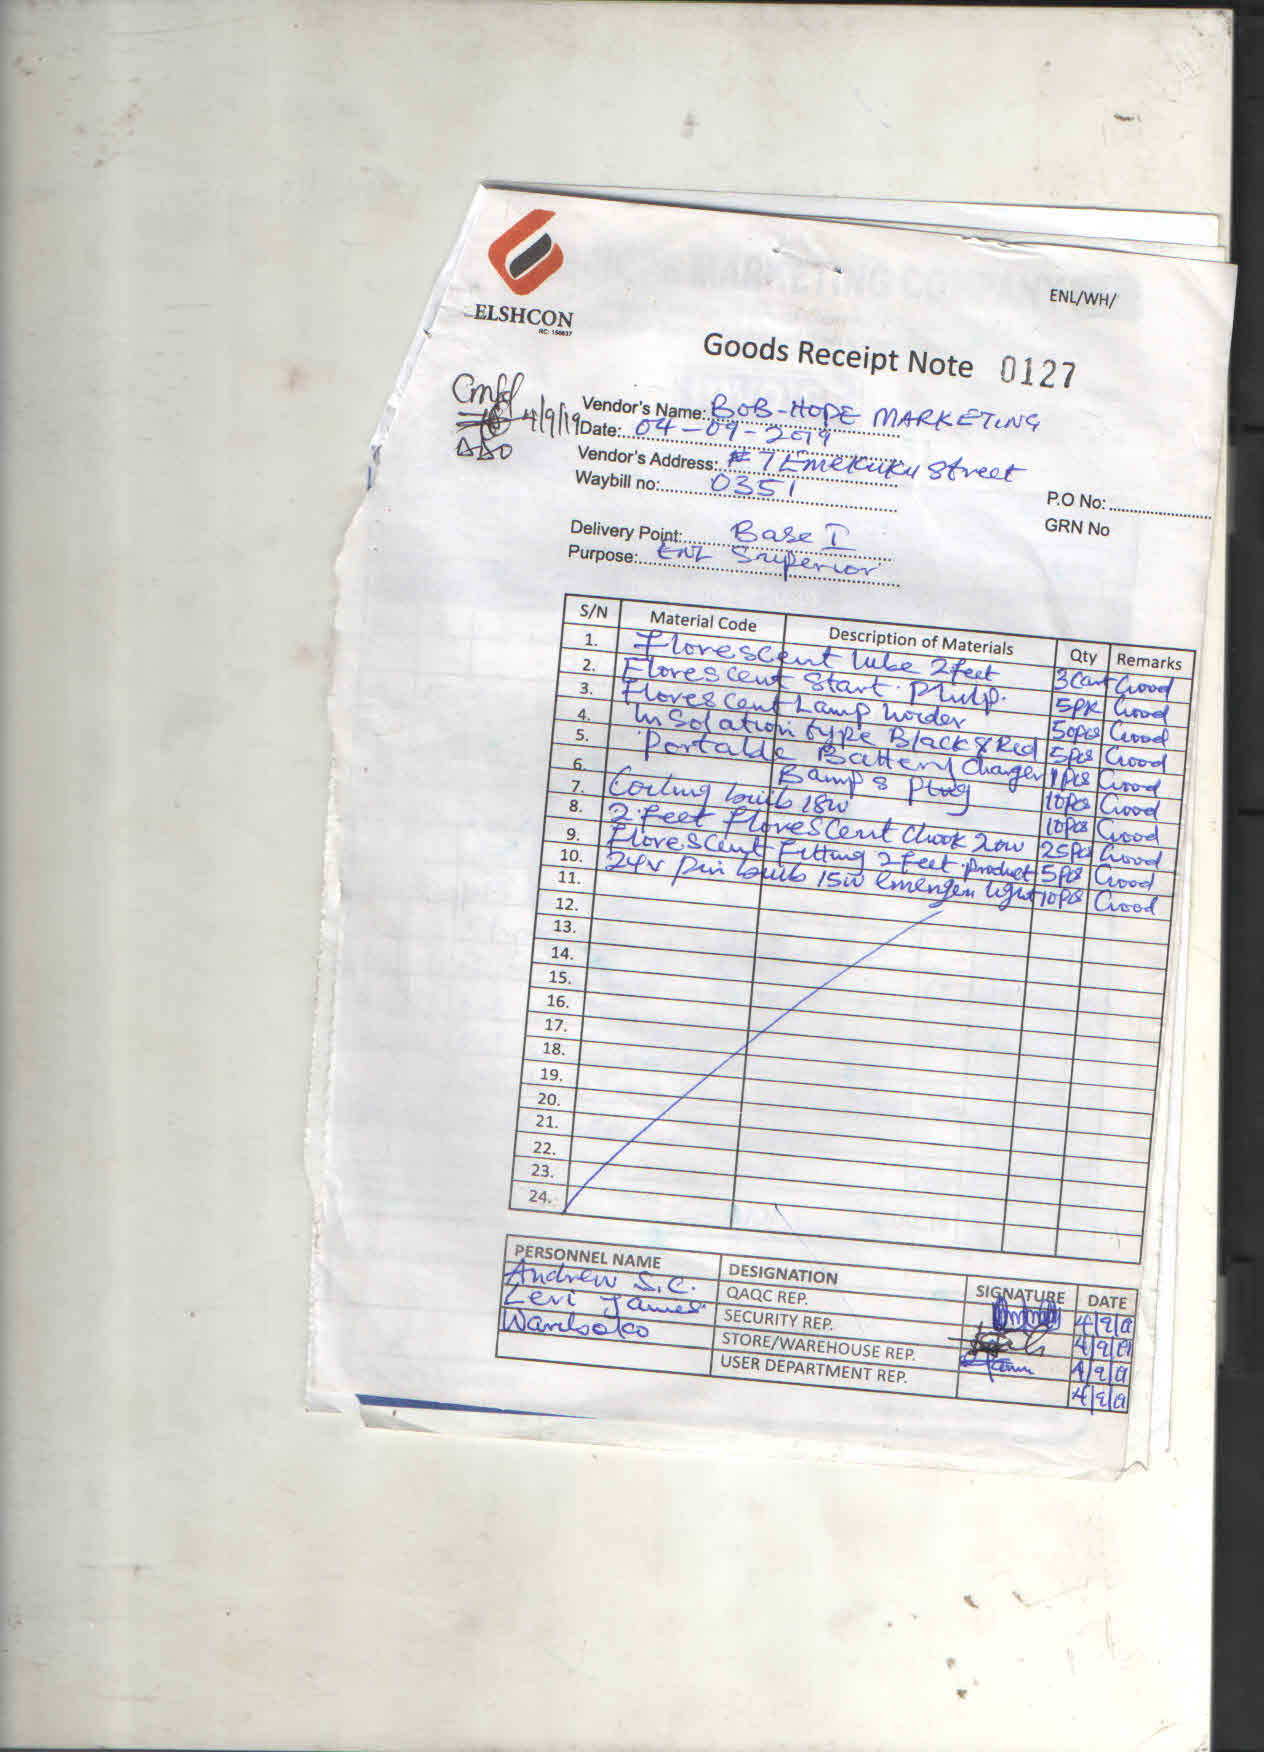 ELSHCON
RC: 150837
ENL/WH/
Goods Receipt Note 0127
4/9/19
Vendor's Name: BOB-HOPE MARKETING
Date: 04-09-2019
Vendor's Address: #7 Emekuku Street
Waybill no: 0351
P.O No:
GRN No
Delivery Point: Base I
Purpose: ENL Superior
S/N Material Code Description of Materials Qty Remarks
1. Florescent tube 2 feet 3Cart Good
2. Florescent Start. 5pk Good
3. Florescent Lamp holder 50pcs Good
4. Insolation type Black & Red 5pcs Good
5. Portable Battery Charger 1pcs Good
6. 8 plug 10pcs Good
7. Coiling bulb 18w 10pcs Good
8. 2 feet florescent Chook 20w 25pcs Good
9. Florescent Fitting 2 feet product 5pcs Good
10. 24v pin bulb 15w emergen light 10pcs Good
11.
12.
13.
14.
15.
16.
17.
18.
19.
20.
21.
22.
23.
24.
PERSONNEL NAME DESIGNATION SIGNATURE DATE
Andrew S.C. QAQC REP. 4/9/19
Levi James SECURITY REP. 4/9/19
Wariboko STORE/WAREHOUSE REP. 4/9/19
USER DEPARTMENT REP. 4/9/19